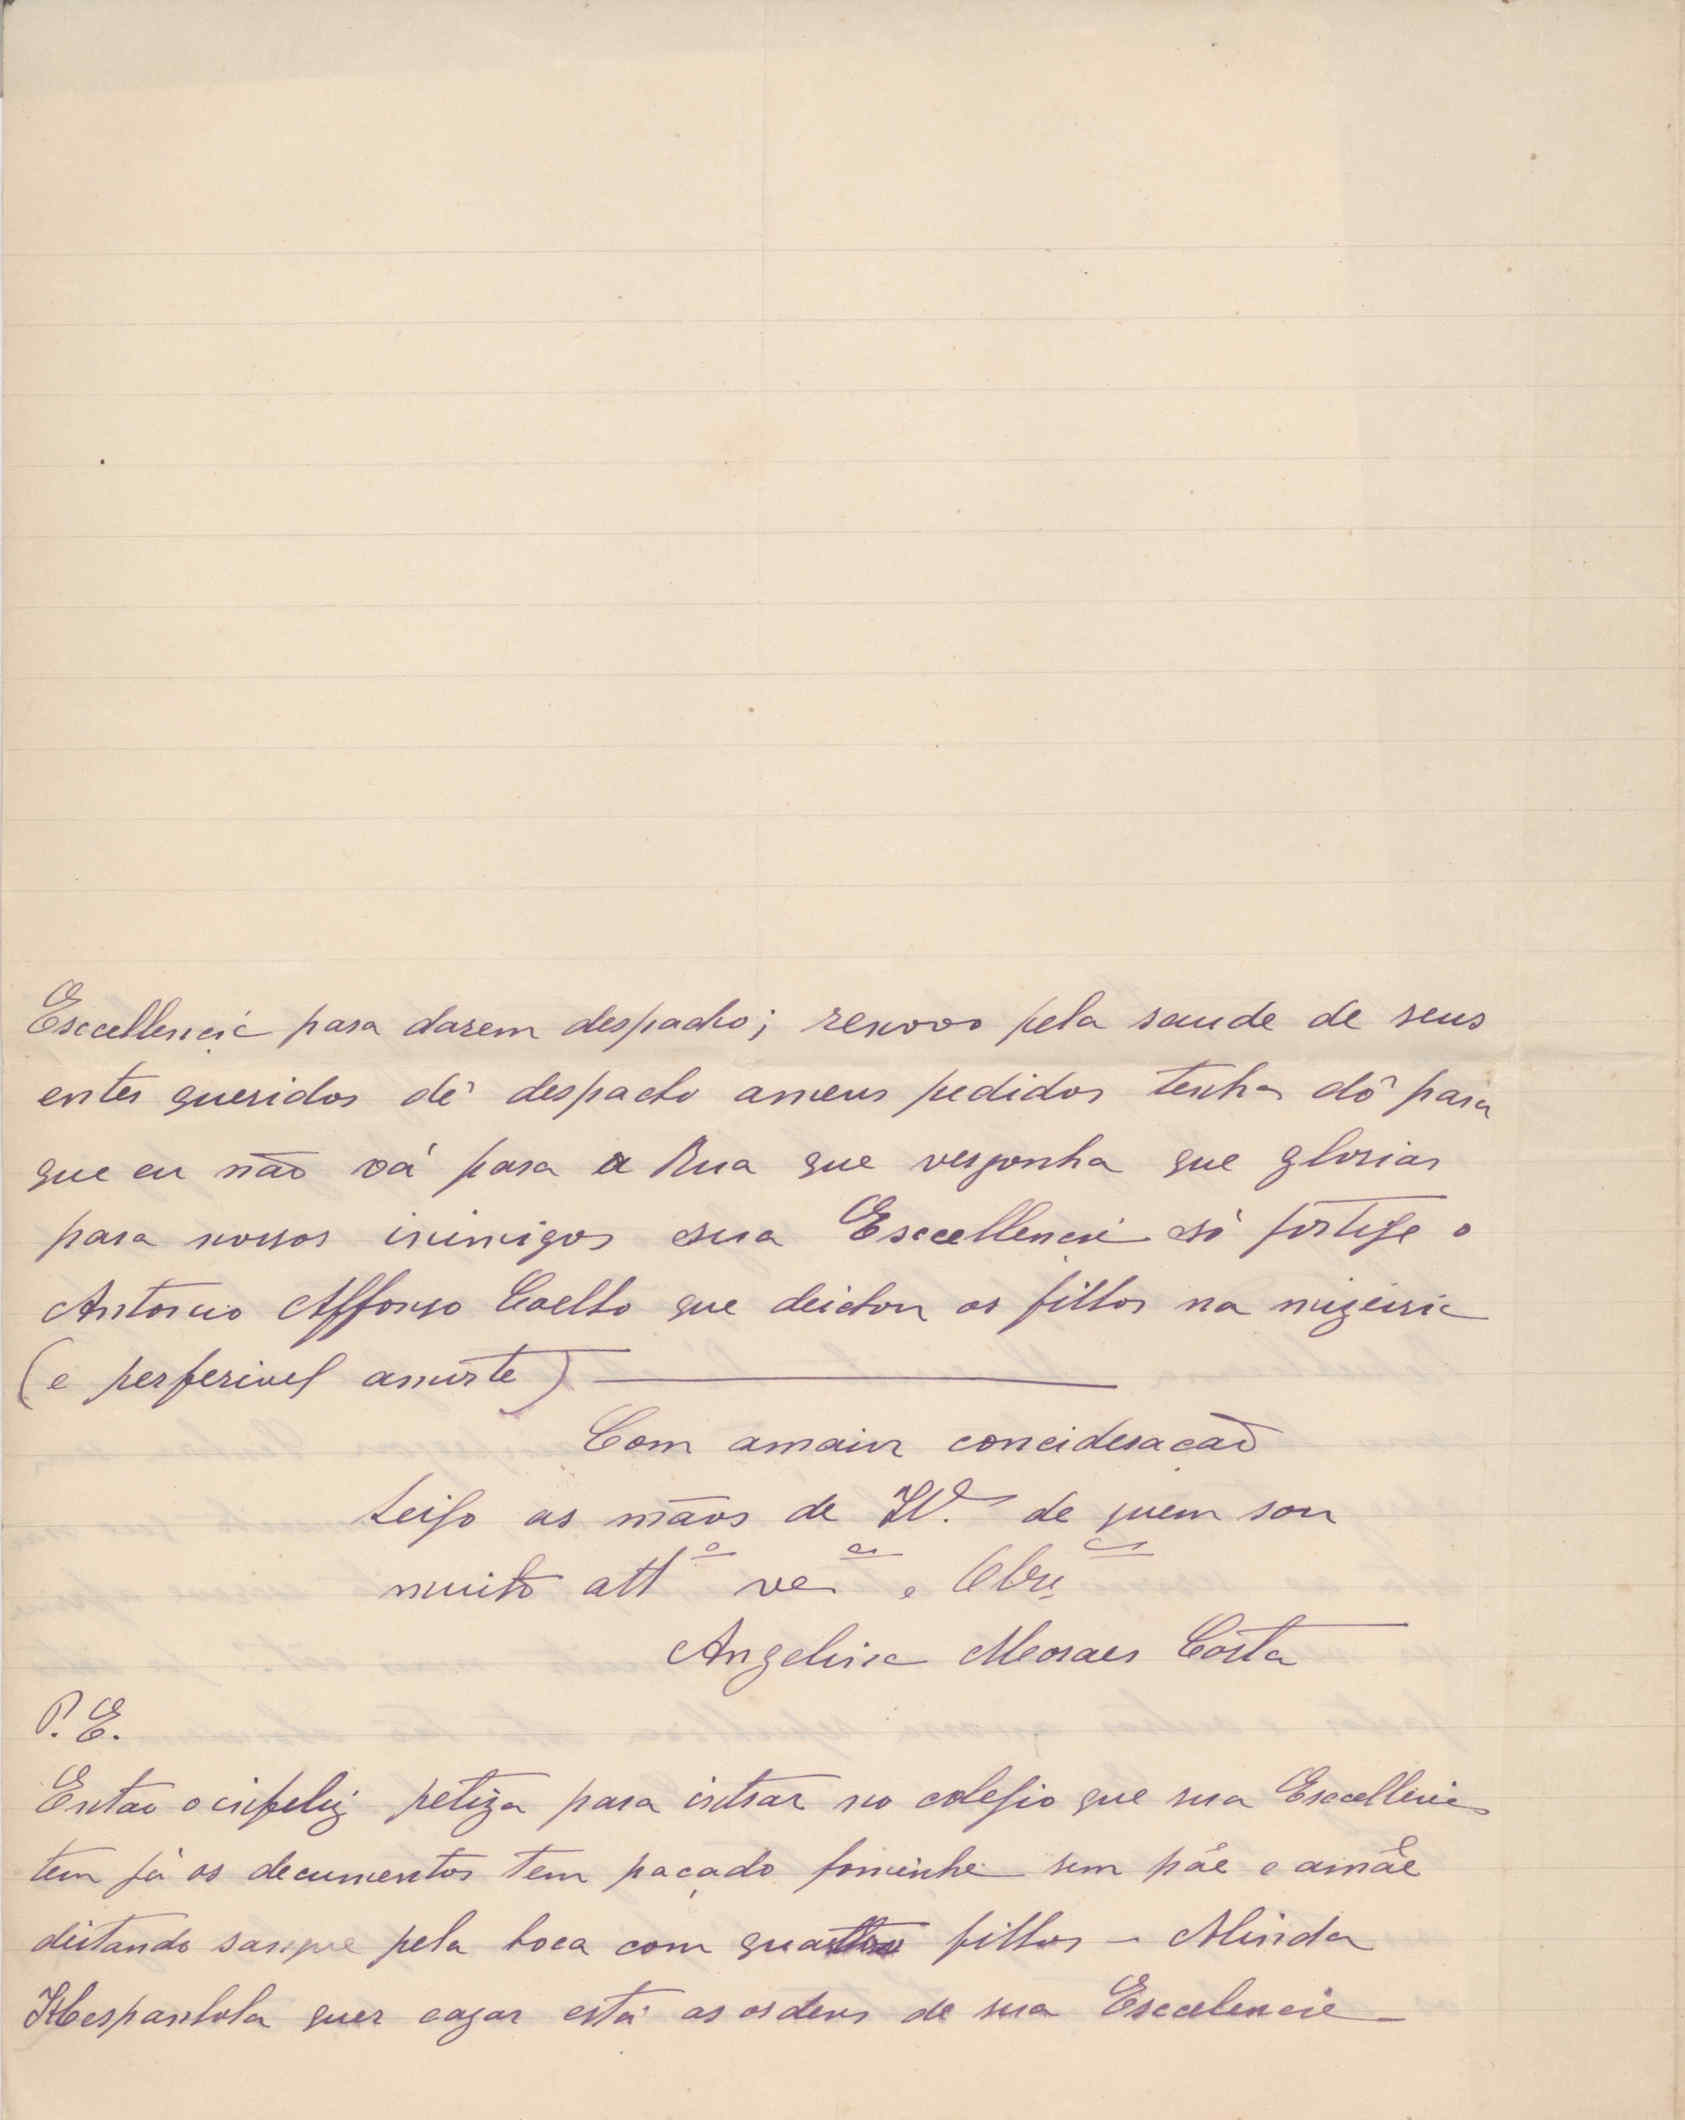 Esccellencia para darem despacho; renovo pela saude de seus
entes queridos dê despacho ameus pedidos tenha dô para
que eu não vá para a Rua que vergonha que glorias
para nossos inimigos sua Esccellencia só protege o
Antonio Affonso Coelho que deichou os filhos na mizeiria
(e perferivel amorte)
Com amaior concideração
Beijo as mãos de V. de quem sou
muito att.º ve e Obr
Angelina Moraes Costa
P.E.
Entao o infeliz petiza para intrar no colejio que sua Esccellencia
tem já os decumentos tem paçado fominha sem páe e amãe
deitando sangue pela boca com quatro filhos - Alinda
Hespanhola quer cazar está as ordens de sua Esccelencia